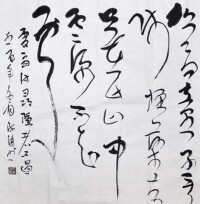 松下問童子言
師採藥去
只在此山中
雲深不知
處
賈島詩尋隱者不遇
年冬月